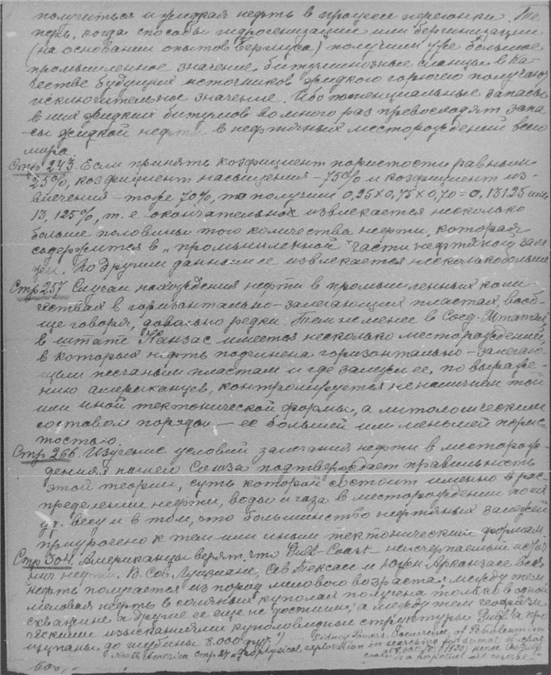 получиться и жидкая нефть в процессе перегонки. Те-
перь, когда способы гидрогенизации или бергинизации
(на основании опытов Бергиуса) получили уже большое
промышленное значение, битуминозные сланцы в ка-
честве будущих источников жидкого горючего получают
исключительное значение. Ибо потенциальные запасы
в них жидких битумов во много раз превосходят запа-
сы жидкой нефти в нефтяных месторождений всего
мира.
Стр 243. Если принять коэфициент пористости равным
25%, коэфициент насыщения – 75% и коэфициент из-
влечения – тоже 70%, то получим 0,25 х 0,75 х 0,70 = 0,13125 или
13,125%, т. е. окончательно извлекается несколько
больше половины того количества нефти, которая
содержится в „промышленной" части нефтяного зале-
жи. По другим данным ее извлекается несколько больше
Стр 257 Случаи нахождения нефти в промышленных коли-
чествах в горизонтально-залегающих пластах, вооб-
ще говоря, довольно редки. Тем не менее в Соед. Штатах
в штате Канзас имеется несколько месторождений,
в которых нефть подчинена горизонтально-залегаю-
щим песчаным пластам и где залежи ее, по выраже-
нию американцев, контролируется не наличием той
или иной тектонической формы, а литологическим
составом породы – ее большей или меньшей порис-
тостью.
Стр 266 Изучение условий залегания нефти в месторож-
дениях нашего Союза подтверждает правильность
этой теории, суть которой состоит именно в рас-
пределении нефти, воды и газа в месторождении по их
уд. весу и в том, что большинство нефтяных залежей
приурочено к тем или иным тектоническим формам
Стр 304. Американцы верят, что Gulf-Coast неисчерпаемый источ-
ник нефти. В Сев. Луизиане, Сев Тексасе и Арканзасе вся
нефть получается из пород мелового возраста: между тем
меловая нефть в соленых куполах получена только в одной
скважине а другие ее еще не достигли, а между тем геофизи-
ческими изысканиями куполовидные структуры
щупаны до глубины 8.000 фут.
North America Стр. 27 „Geophysical exploration